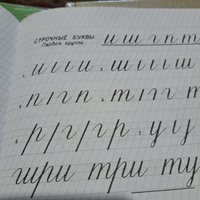 СТРОЧНЫЕ БУКВЫ и ш г п т
Первая группа
и ι ι и . ш ι ι ι ш
п ι г п . т ι г г т
р ι г г р . у ι у
три три ту